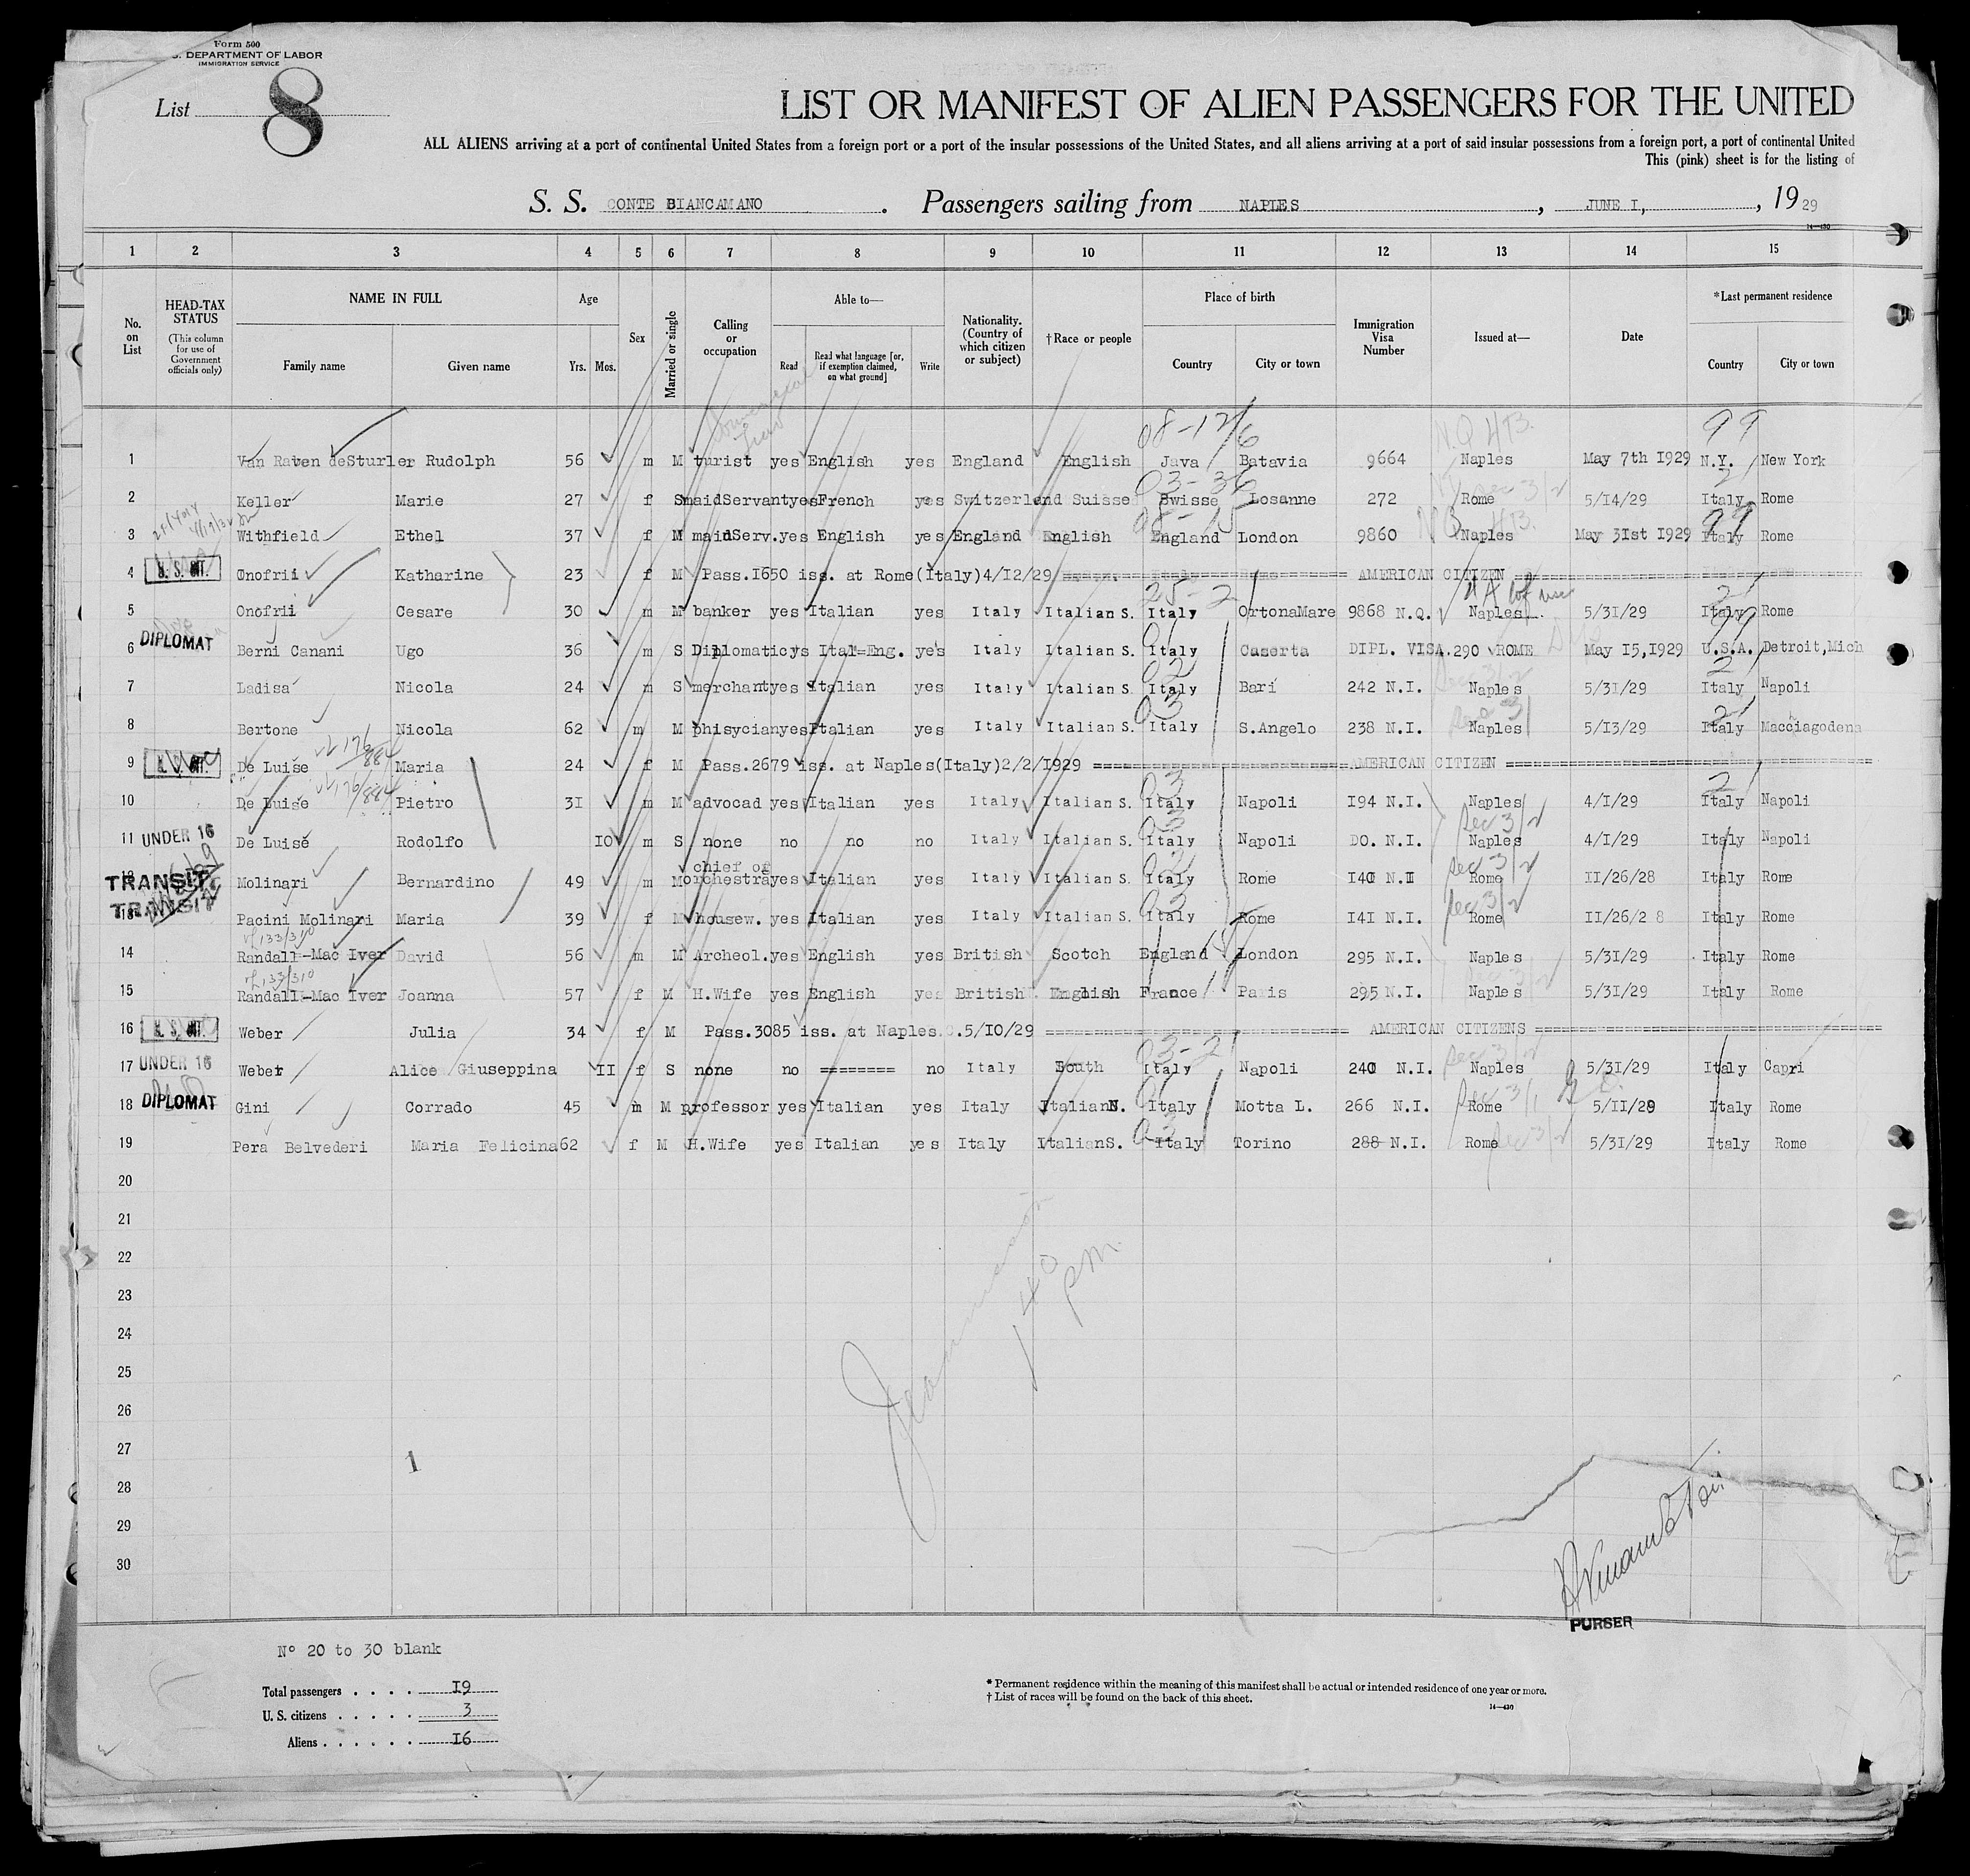 Form 500
S. DEPARTMENT OF LABOR
IMMIGRATION SERVICE
List 8
LIST OR MANIFEST OF ALIEN PASSENGERS FOR THE UNITED
ALL ALIENS arriving at a port of continental United States from a foreign port or a port of the insular possessions of the United States, and all aliens arriving at a port of said insular possessions from a foreign port, a port of continental United
This (pink) sheet is for the listing of
S. S. CONTE BIANCAMANO . Passengers sailing from NAPLES , JUNE I, , 19 29
14—430
1 2 3 4 5 6 7 8 9 10 11 12 13 14 15
No. on List
HEAD-TAX STATUS (This column for use of Government officials only)
NAME IN FULL Family name Given name
Age Yrs. Mos.
Sex
Married or single
Calling or occupation
Able to— Read Read what language [or, if exemption claimed, on what ground] Write
Nationality. (Country of which citizen or subject)
†Race or people
Place of birth Country City or town
Immigration Visa Number
Issued at—
Date
*Last permanent residence Country City or town
08-12/6 99
1 Van Raven deSturler Rudolph 56 m M turist yes English yes England English Java Batavia 9664 Naples May 7th I929 N.Y. New York
03-36
2 Keller Marie 27 f S maidServant yes French yes Switzerland Suisse Swisse Losanne 272 Rome 5/14/29 Italy Rome
3 Withfield Ethel 37 f M maidServ. yes English yes England English England London 9860 Naples May 3Ist I929 Italy Rome
4 U. S. CIT. Onofrii Katharine 23 f M Pass.I650 iss. at Rome(Italy)4/I2/29 ======== AMERICAN CITIZEN ========
25-2
5 Onofrii Cesare 30 m M banker yes Italian yes Italy Italian S. Italy OrtonaMare 9868 N.Q. Naples 5/31/29 Italy Rome
6 DIPLOMAT Berni Canani Ugo 36 m S Diplomatic ys Ital-Eng. yes Italy Italian S. Italy Caserta DIPL. VISA.290 ROME May I5,I929 U.S.A. Detroit,Mich
7 Ladisa Nicola 24 m S merchant yes Italian yes Italy Italian S. Italy Bari 242 N.I. Naples 5/31/29 Italy Napoli
8 Bertone Nicola 62 m M phisycian yes Italian yes Italy Italian S. Italy S.Angelo 238 N.I. Naples 5/I3/29 Italy Macciagodena
9 U. S. CIT. De Luise Maria 24 f M Pass.2679 iss. at Naples(Italy)2/2/I929 ======== AMERICAN CITIZEN ========
10 De Luise Pietro 3I m M advocad yes Italian yes Italy Italian S. Italy Napoli I94 N.I. Naples 4/I/29 Italy Napoli
Sec 3/2
11 UNDER 16 De Luise Rodolfo IO m S none no no no Italy Italian S. Italy Napoli DO. N.I. Naples 4/I/29 Italy Napoli
chief of
12 TRANSIT Molinari Bernardino 49 m M orchestra yes Italian yes Italy Italian S. Italy Rome I40 N.I Rome II/26/28 Italy Rome
13 TRANSIT Pacini Molinari Maria 39 f M housew. yes Italian yes Italy Italian S. Italy Rome I4I N.I. Rome II/26/2 8 Italy Rome
133/310
14 Randall-Mac Iver David 56 m M Archeol. yes English yes British Scotch England London 295 N.I. Naples 5/31/29 Italy Rome
133/310
15 Randall-Mac Iver Joanna 57 f M H.Wife yes English yes British English France Paris 295 N.I. Naples 5/31/29 Italy Rome
16 U. S. CIT. Weber Julia 34 f M Pass.3085 iss. at Naples. .5/IO/29 ======== AMERICAN CITIZENS ========
03-2
17 UNDER 16 Weber Alice Giuseppina II f S none no ======== no Italy South Italy Napoli 240 N.I. Naples 5/31/29 Italy Capri
18 DIPLOMAT Gini Corrado 45 m M professor yes Italian yes Italy ItalianN. Italy Motta L. 266 N.I. Rome 5/II/29 Italy Rome
19 Pera Belvederi Maria Felicina 62 f M H.Wife yes Italian yes Italy ItalianS. Italy Torino 288 N.I. Rome 5/31/29 Italy Rome
20
21
22
23
24
25
26
27
28
29
30
1 40 pm
1
PURSER
Nº 20 to 30 blank
Total passengers . . . . I9
U. S. citizens . . . . . 3
Aliens . . . . . . I6
* Permanent residence within the meaning of this manifest shall be actual or intended residence of one year or more.
† List of races will be found on the back of this sheet.
14—430